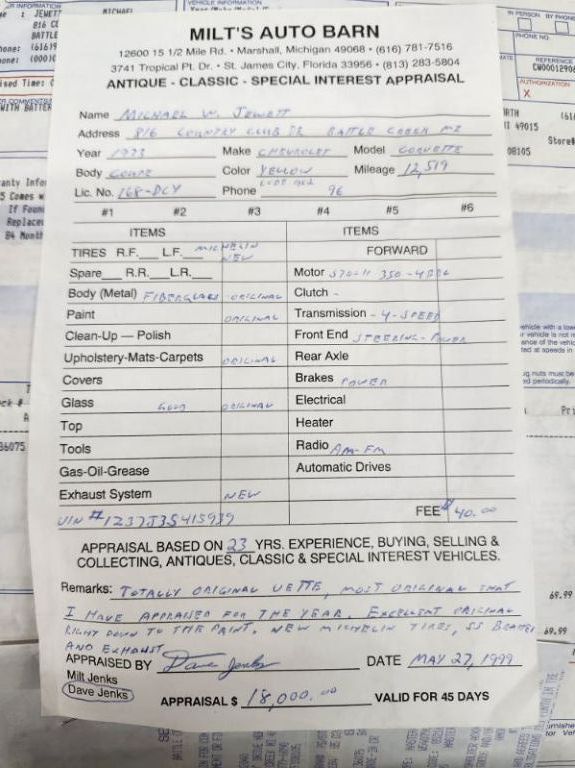 VEHICLE INFORMATION
: JEWETT
MICHAEL
816 CO
BATTLE
Phone: (616)9
IN PERSON BY PHONE
PHONE NO.
REFERENCE
CW00012906
AUTHORIZATION
X
WITH BATTER
MILT'S AUTO BARN
12600 15 1/2 Mile Rd. • Marshall, Michigan 49068 • (616) 781-7516
3741 Tropical Pt. Dr. • St. James City, Florida 33956 • (813) 283-5804
ANTIQUE - CLASSIC - SPECIAL INTEREST APPRAISAL
Name MICHAEL W. JEWETT
Address 816 COUNTRY CLUB DR BATTLE CREEK MI
Year 1973 Make CHEVROLET Model CORVETTE
Body COUPE Color YELLOW Mileage 12,519
Lic. No. 168-DCY Phone 96
#1 #2 #3 #4 #5 #6
ITEMS ITEMS
TIRES R.F. L.F. MICHELIN NEW FORWARD
Spare R.R. L.R. Motor 350-4BBL
Body (Metal) FIBERGLASS ORIGINAL Clutch -
Paint ORIGINAL Transmission - 4-SPEED
Clean-Up — Polish Front End STEERING - POWER
Upholstery-Mats-Carpets ORIGINAL Rear Axle
Covers Brakes POWER
Glass GOOD ORIGINAL Electrical
Top Heater
Tools Radio AM-FM
Gas-Oil-Grease Automatic Drives
Exhaust System NEW
VIN # 1Z37J3S415939 FEE $40.00
APPRAISAL BASED ON 23 YRS. EXPERIENCE, BUYING, SELLING &
COLLECTING, ANTIQUES, CLASSIC & SPECIAL INTEREST VEHICLES.
Remarks: TOTALLY ORIGINAL VETTE, MOST ORIGINAL THAT
I HAVE APPRAISED FOR THE YEAR. EXCELLENT ORIGINAL
RIGHT DOWN TO THE PAINT. NEW MICHELIN TIRES, SS BRAKES
AND EXHAUST
APPRAISED BY Dave Jenks DATE MAY 27, 1999
Milt Jenks
Dave Jenks
APPRAISAL $ 18,000.00 VALID FOR 45 DAYS
49015
08105
36075
69.99
69.99